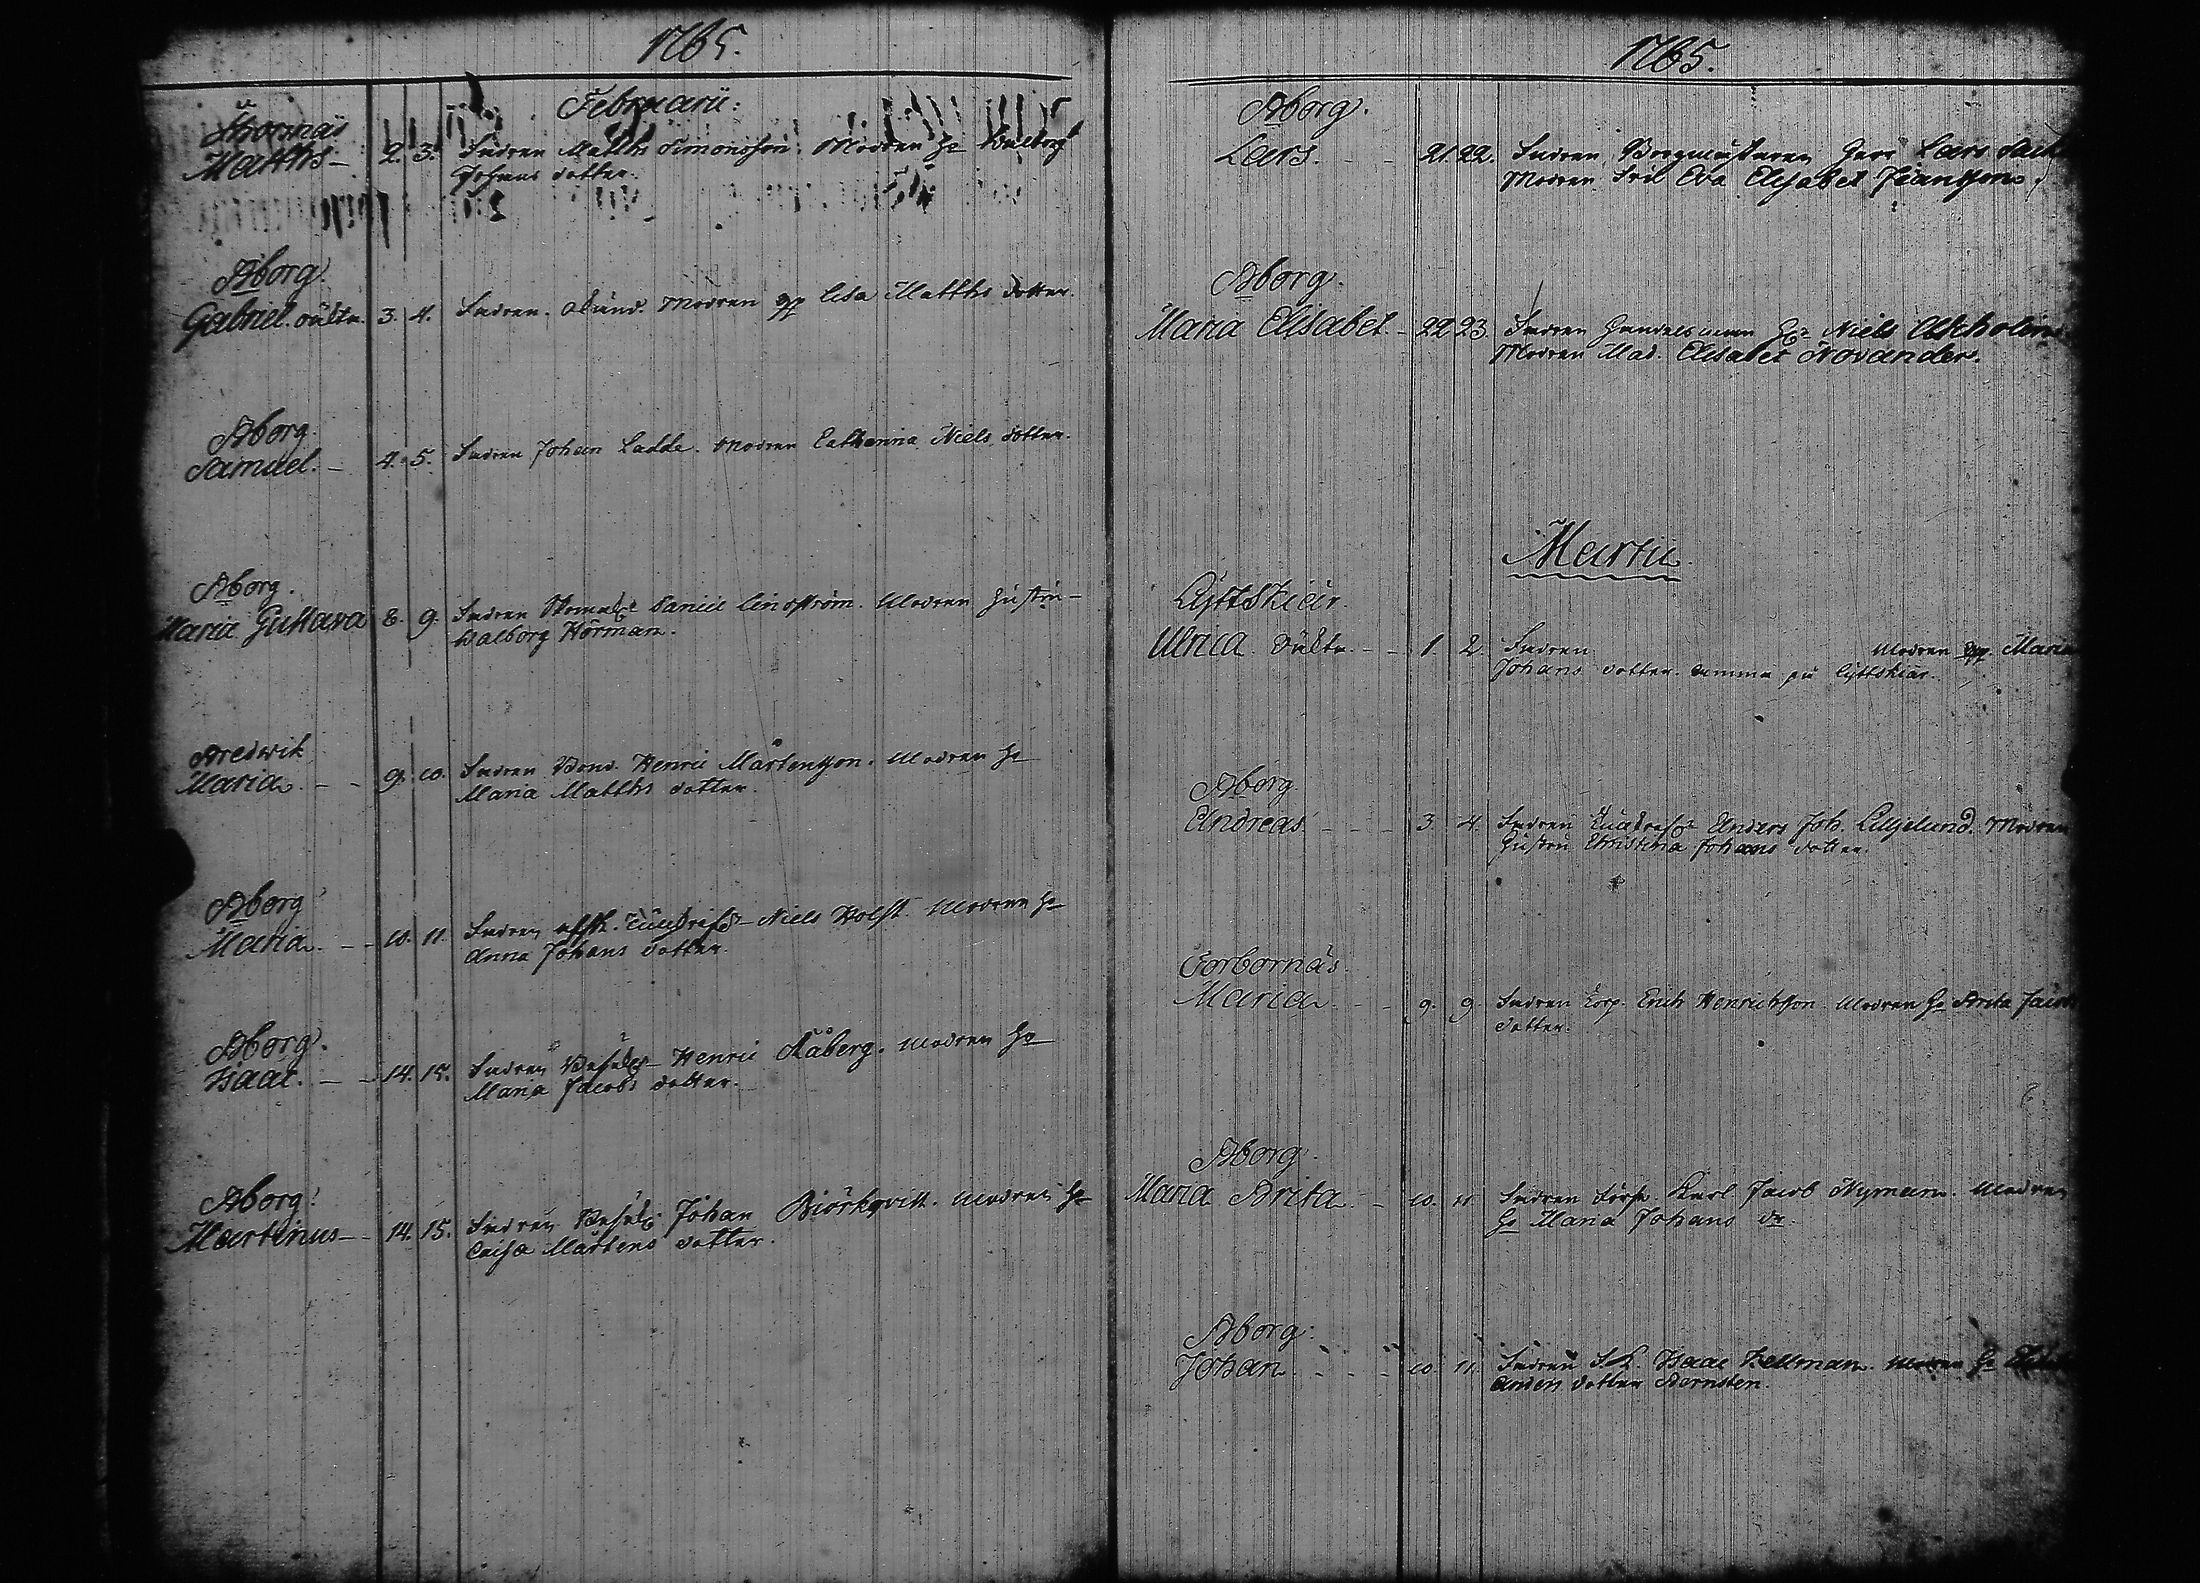 1765.
Februarii:
Matths - 2. 3. Fadren Matths Simonsson. Modren h: Walborg
Johans dotter.
Aborg.
Gabriel. oäkta. 3. 4. Fadren. okänd. Modren qp Lisa Matths dotter.
Aborg
Samuel. - 4. 5. Fadren Johan Ladde. Modren Catharina Niels dotter.
Aborg.
Maria Gustava 8. 9. Fadren Daniel Lindström. Modren hustru
Walborg Hörman.
Bredwik
Maria. - - 9. 10. Fadren Bond. Henric Mårtensson. Modren h:
Maria Matths dotter.
Aborg
Maria. - - 10. 11. Fadren Niels Holst. Modren h:
Anna Johans dotter.
Aborg.
Isaac. - - 14. 15. Fadren Henric Råberg. Modren h:
Maria Jacobs dotter.
Aborg.
Martinus - 14. 15. Fadren Johan Biörkqvist. Modren h:
Caisa Mårtens dotter.
1765.
Aborg.
Lars. - - 21. 22. Fadren Borgmästaren Herr Lars
Modren Eva Elisabet
Aborg.
Maria Elisabet. - 22. 23. Fadren Handelsman Niels
Modren Mad. Elisabet Novander.
Martii.
Lyttskiär.
Ulrica. oäkta. - - 1. 2. Fadren Modren qp. Maria
Johans dotter. amma på Lyttskiär.
Aborg.
Andreas. - - - 3. 4. Fadren Anders Joh. Liljelund. Modren
hustru Christina Johans dotter.
Forbornäs.
Maria. - - 9. 9. Fadren Corp. Erich Henrichsson. Modren h: Brita Jacobs
dotter.
Aborg.
Maria Brita. - 10. 11. Fadren Karl Jacob Nyman. Modren
h: Maria Johans dr.
Aborg.
Johan. - - - 10. 11. Fadren Isaac Hellman. Modren h:
dotter Bernsten.